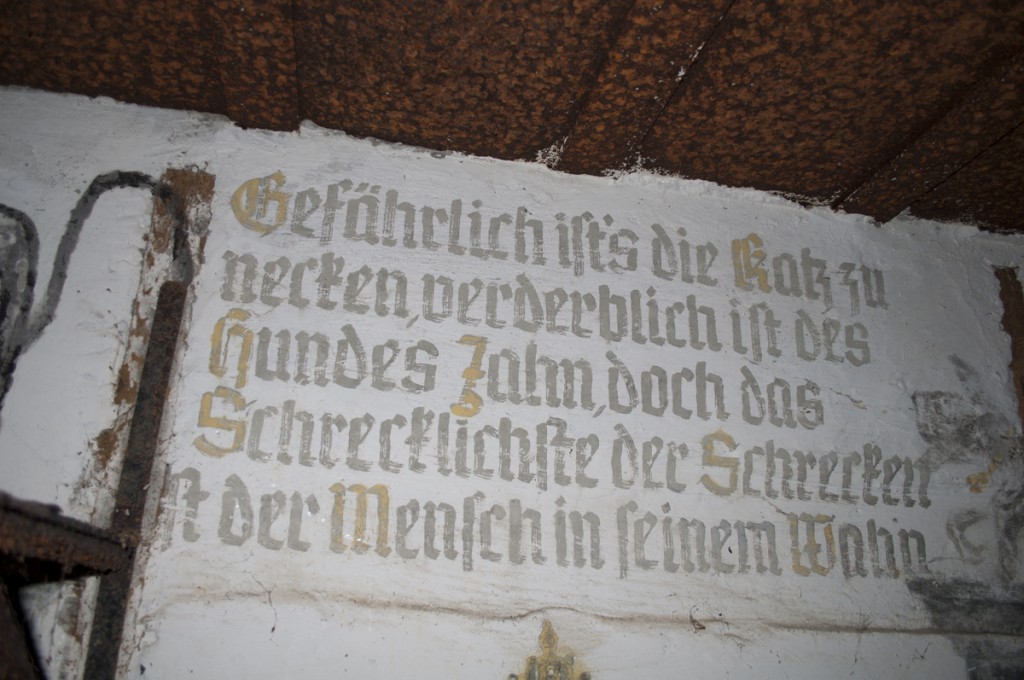 Gefährlich ist's die Katz zu
necken, verderblich ist des
Hundes Zahn, doch das
Schrecklichste der Schrecken
ist der Mensch in seinem Wahn